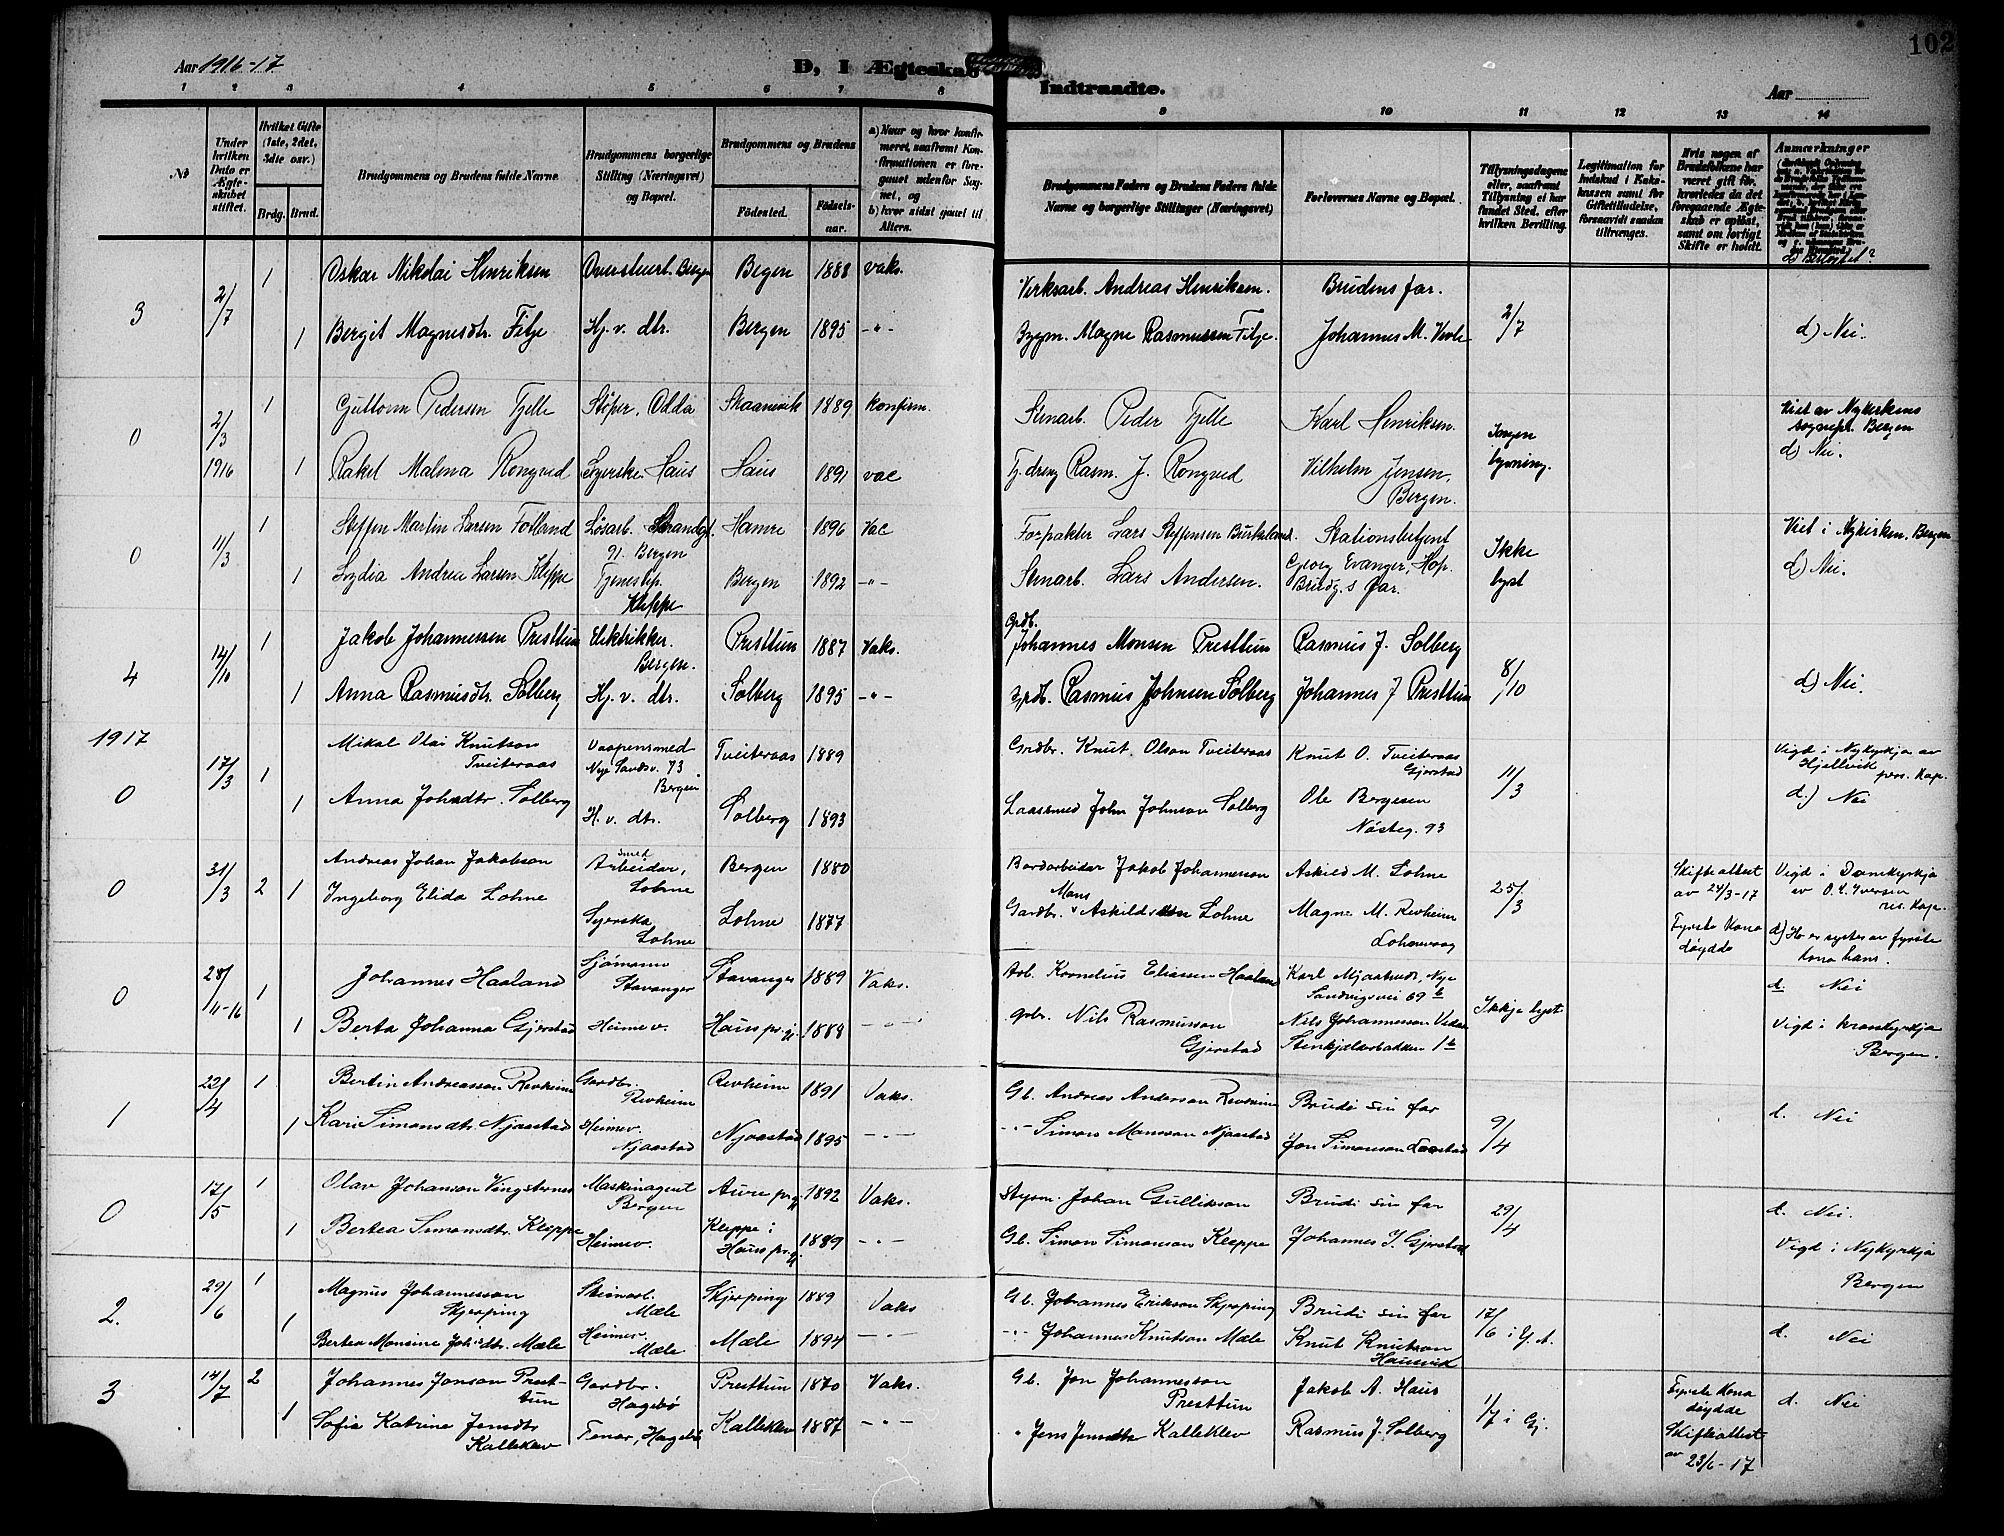 Aar 1916-17
D, I Ægteskab
Indtraadte.
Aar
102
1 2 3 4 5 6 7 8 9 10 11 12 13 14
No
Under hvilken Dato er Ægteskabet stiftet.
Hvilket Gifte (1ste, 2det, 3die osv.)
Brdg. Brud.
Brudgommens og Brudens fulde Navne.
Brudgommens borgerlige Stilling (Næringsvei) og Bopæl.
Brudgommens og Brudens
Fødested. Fødselsaar.
a) Naar og hvor konfirmeret, saafremt Konfirmationen er foregaaet udenfor Sognet, og
b) hvor sidst gaaet til Alters.
Brudgommens Faders og Brudens Faders fulde Navne og borgerlige Stillinger (Næringsvei)
Forlovernes Navne og Bopæl.
Tillysningsdagene eller, saafremt Tillysning ei har fundet Sted, efter hvilken Bevilling.
Legitimation for Indskud i Enkekassen samt for Giftetilladelse, forsaavidt saadan tiltrænges.
Hvis nogen af Brudefolkene har været gift før, hvorledes da det foregaaende Ægteskab er opløst, samt om lovligt Skifte er holdt.
Anmærkninger
d) Beslegtet?
3 2/7 1 Oskar Nikolai Henriksen Bergen Begen 1888 vaks. Verksarb. Andreas Henriksen. Brudens far. 2/7
1 Bergit Magnesdtr. Fitje Hj. v. dtr. Bergen 1895 -"- Magne Rasmussen Fitje. Johannes M. d) Nei.
0 2/3 1916 1 Guttorm Pedersen Fjelle Støper, Odda Skaanevik 1889 Konfirm. Stenarb. Peder Fjelle Karl Henriksen. Ingen lysning. Viet av Nykirkens sognepr. Bergen
1 Rakel Malena Rongved Syerske Haus Haus 1891 vac Rasm. J. Rongved Vilhelm Jensen, Bergen. d) Nei.
0 11/3 1 Steffen Martin Larsen Fotland Løsarb. Strandgt. 91. Bergen Hamre 1896 Vac Forpakter Lars Steffensen Stationsbetjent Georg Evanger, Hop. Ikke lyst Viet i Nykirken, Bergen
1 Lydia Andrea Larsen Kleppe Tjenestep. Kleppe Bergen 1892 -"- Stenarb. Lars Andersen. Brudg. s far. d) Nei.
4 14/10 1 Jakob Johannessen Presttun Elektrikker Bergen. Presttun 1887 Vaks. Grdb. Johannes Monsen Presttun Rasmus J. Solberg 8/10
1 Anna Rasmusdtr. Solberg Hj. v. dtr. Solberg 1895 -"- Grdb. Rasmus Johnsen Solberg Johannes J Presttun d) Nei.
1917
0 17/3 1 Mikal Olai Knutson Tveiteraas Vaapensmed Nye Sandsv. 73 Bergen Tveiteraas 1889 Gardbr. Knut Olson Tveiteraas Knut O. Tveiteraas Gjerstad 11/3 Vigd i Nykyrkja av Hjellvik pers. Kap.
1 Anna Johndtr. Solberg H. v. dtr. Solberg 1893 Laassmed John Johnson Solberg Ole Bergesen Nøsteg. 93 d.) Nei
0 31/3 2 1 Andreas Johan Jakobson Smed Arbeidar, Lohne Bergen 1880 Bordarbeidar Jakob Johannesson Askild M. Lohne 25/3 Skifteattest av 24/3-17 Vigd i Domkyrkja av O. K. Iversen res. Kap.
Ingeborg Elida Lohne Syerska Lohne Lohne 1877 Gardbr. Mons Askildson Lohne Magne M. Revheim Lohevaag Fyrste Kona døydde d) Ho er syster av fyrste kona hans.
0 28/11-16 1 Johannes Haaland Sjømann Stavanger Stavanger 1889 Vaks. Arb. Kornelius Eliassen Haaland Karl Mjaatvedt, Nye Sandvigsvei 69 b Ikkje lyst d. Nei
1 Berta Johanna Gjerstad Heimev. Haus pr.gj. 1888 -"- Gbr. Nils Rasmusson Gjerstad Nils Johannesson Stenkjelderbakken 1 b Vigd i Krosskyrkja Bergen.
1 22/4 1 Bertin Andreasson Revheim Gardbr. Revheim Revheim 1891 Vaks. Gb. Andreas Anderson Revheim Brudi sin far 9/4 d. Nei
1 Kari Simonsdtr. Njaastad Heimev. Njaastad Njaastad 1895 -"- -"- Simon Monsson Njaastad Jon Simonson
0 17/5 1 Olav Johanson Vingsternes Maskinagent Bergen Aure pr.gj. 1892 Vaks. Styrm. Johan Gullikson Brudi sin far 29/4 d. Nei.
1 Bertea Simonsdtr. Kleppe Heimev. Kleppe i Haus pr.gj. 1889 -"- Gb. Simon Simonson Kleppe Johannes J. Gjerstad Vigd i Nykyrkja Bergen
2. 29/6 1 Magnus Johannesson Skjerping Steinarb. Mæle Skjerping 1889 Vaks Gb. Johannes Erikson Skjerping Brudi sin far 17/6 i G.A.
1 Bertea Monsine Joh.dtr. Mæle Heimev. Mæle Mæle 1894 -"- -"- Johannes Knutson Mæle Knut Knutson Hausvik d. Nei
3 14/7 2 Johannes Jonson Presttun Gardbr. Hagebø Presttun 1870 Vaks. Gb. Jon Johannesson Presttun Jakob A. Haus 1/7 i Gj. Fyrste Kona døydde d. Nei
1 Sofia Katrine Jensdtr Kalleklev Tenar, Hagebø Kalleklev 1887 -"- " Jens Kalleklev Rasmus J. Solberg Skifteattest av 23/6-17